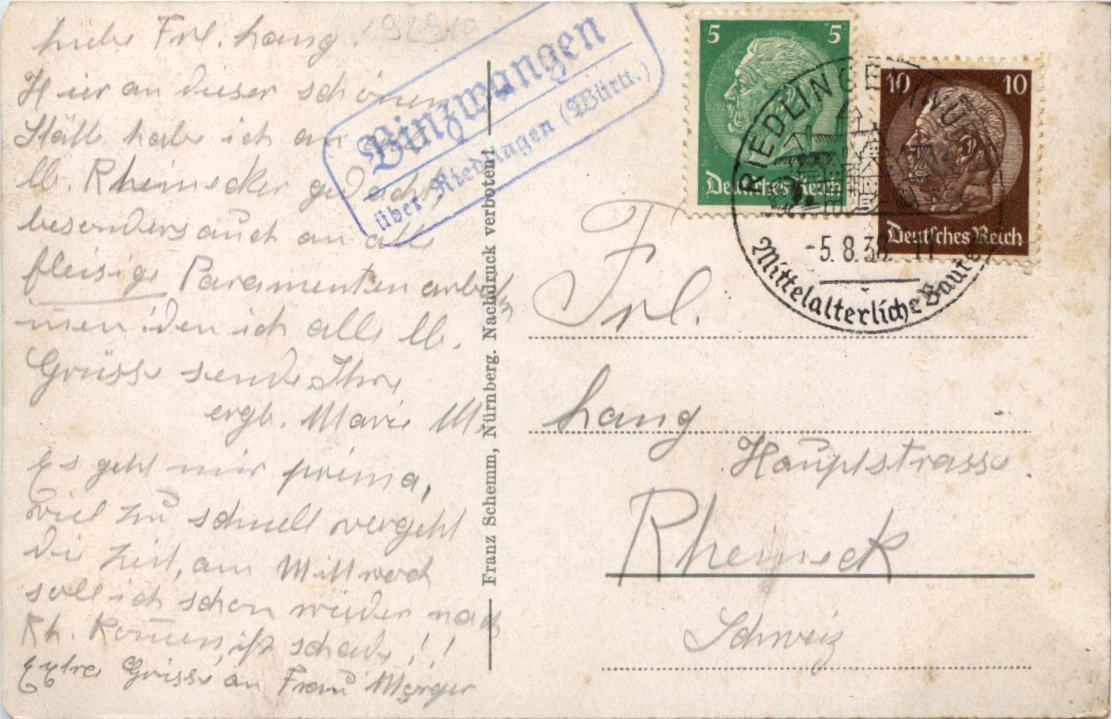 Liebe Frl. Lang.
Hier an dieser schönen
Stätte habe ich an
lb. Rheinecker gedacht
besonders auch an alle
fleisige Paramenten arbeit
innen den ich alle lb.
Grüsse sende Ihre
ergb. Marie M.
Es geht mir prima,
viel zu schnell vergeht
die Zeit, am Mittwoch
soll ich schon wieder nach
Rh. Komen, ist schade!!
Extra Grüsse an Frau Merger
Binzwangen
über Riedlingen (Württ.)
Franz Schemm, Nürnberg. Nachdruck verboten!
5 5
Deutsches Reich
10 10
Deutsches Reich
RIEDLINGEN (WÜRTT
-5.8.38
Mittelalterliche Bauten
Frl.
Lang
Hauptstrasse
Rheineck
Schweiz